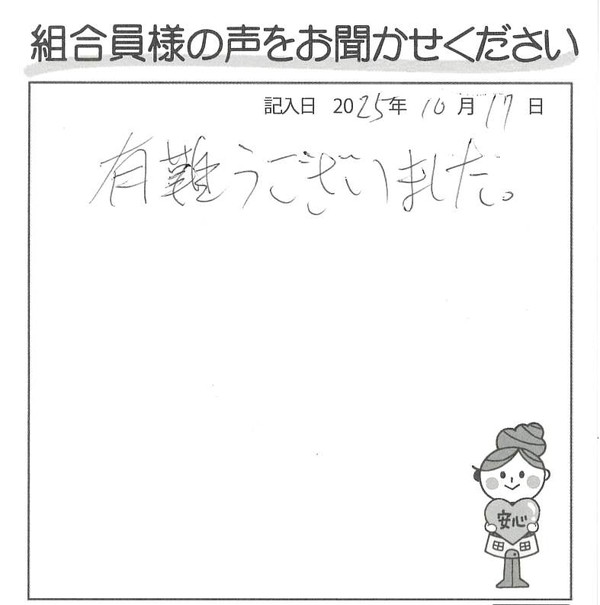 組合員様の声をお聞かせください
記入日 2025年10月17日
有難うございました。
安心